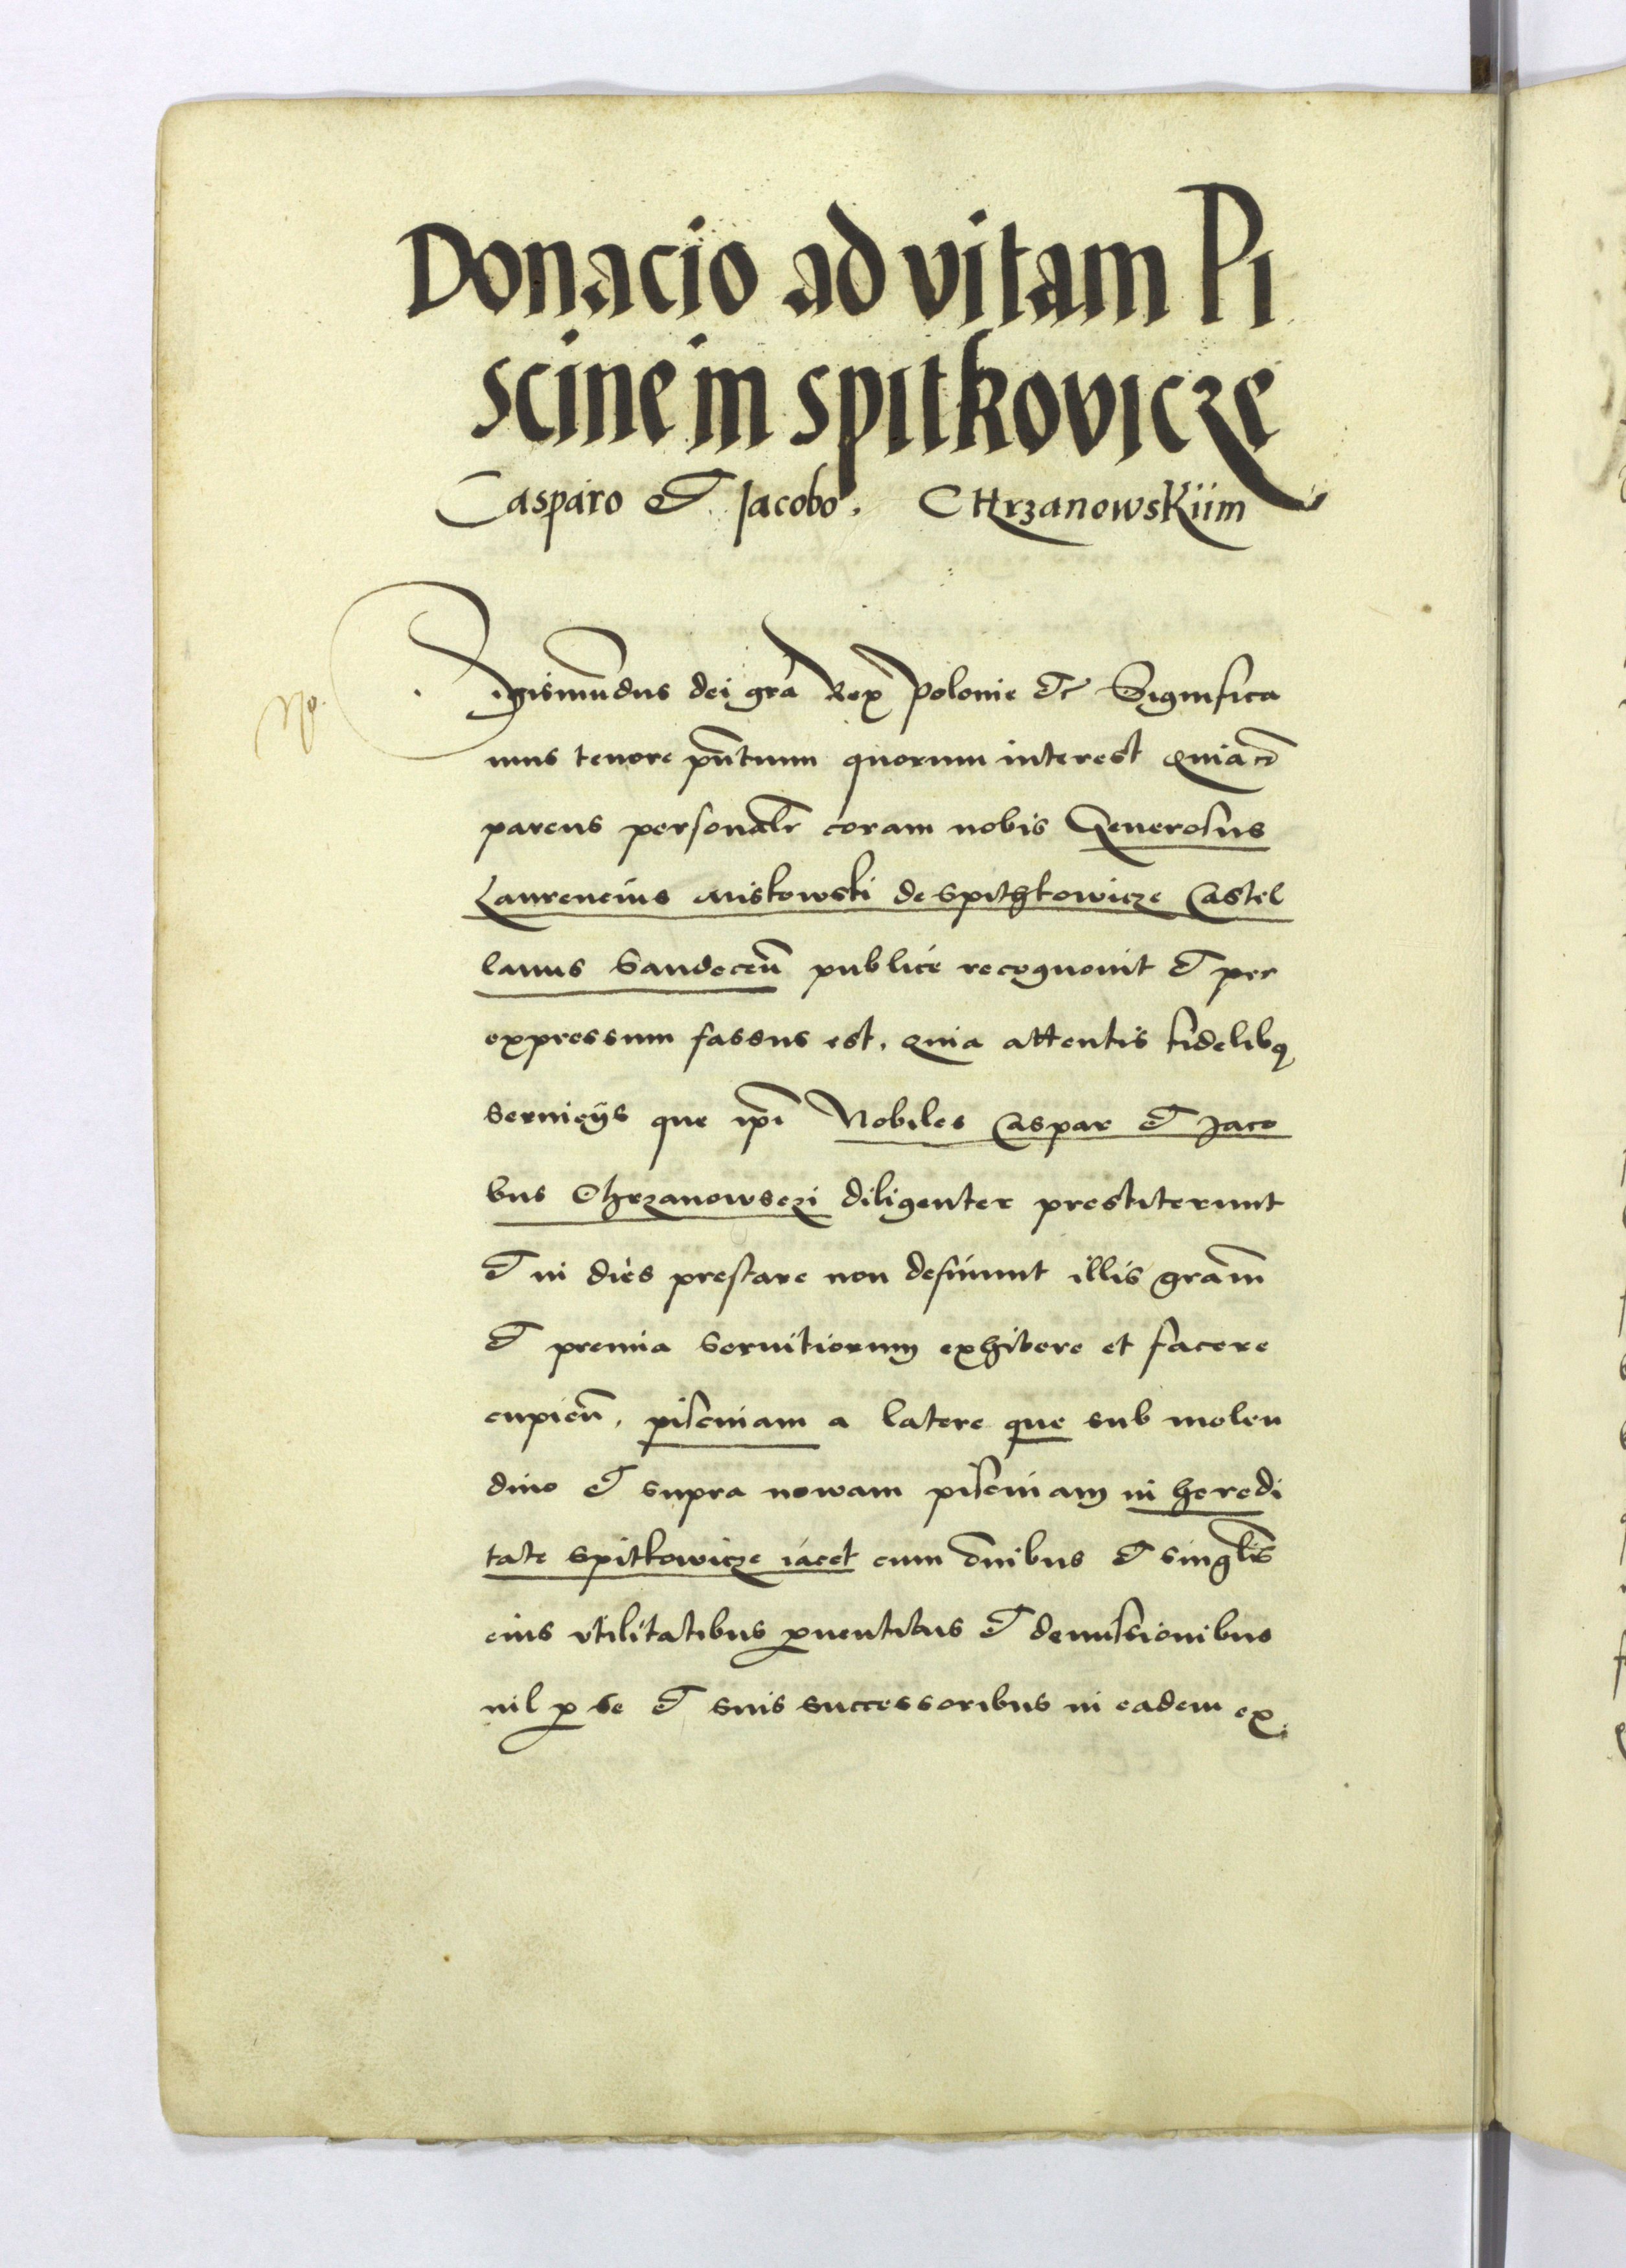 Donacio ad vitam Pi
scine in spitkovicze
Casparo et Jacobo. CHrzanowskiim
Sigismūdus dei gr̄a Rex Polonie etc Significa
mus tenore p̄ntium quorum interest Quia cō
parens personalr̄ coram nobis Generosus
Laurencius Miskowski de Spithkowicze Castel
lanus Sandeceñ publice recognovit et per
expressum fassus est. Quia attentis fidelibq
serviciis que ip̄i Nobiles Caspar et Jaco
bus Chrzanowsczi diligenter prestiterunt
et in dies prestare non desinunt illis grām
et premia Servitiorum exhibere et facere
cupieñ. piscinam a latere que sub molen
dino et supra novam piscinam in heredi
tate Spitkowicze iacet cum ōnibus et singl̄is
eius utilitatibus proventibus et demissionibus
nil p se et suis successoribus in eadem ex: